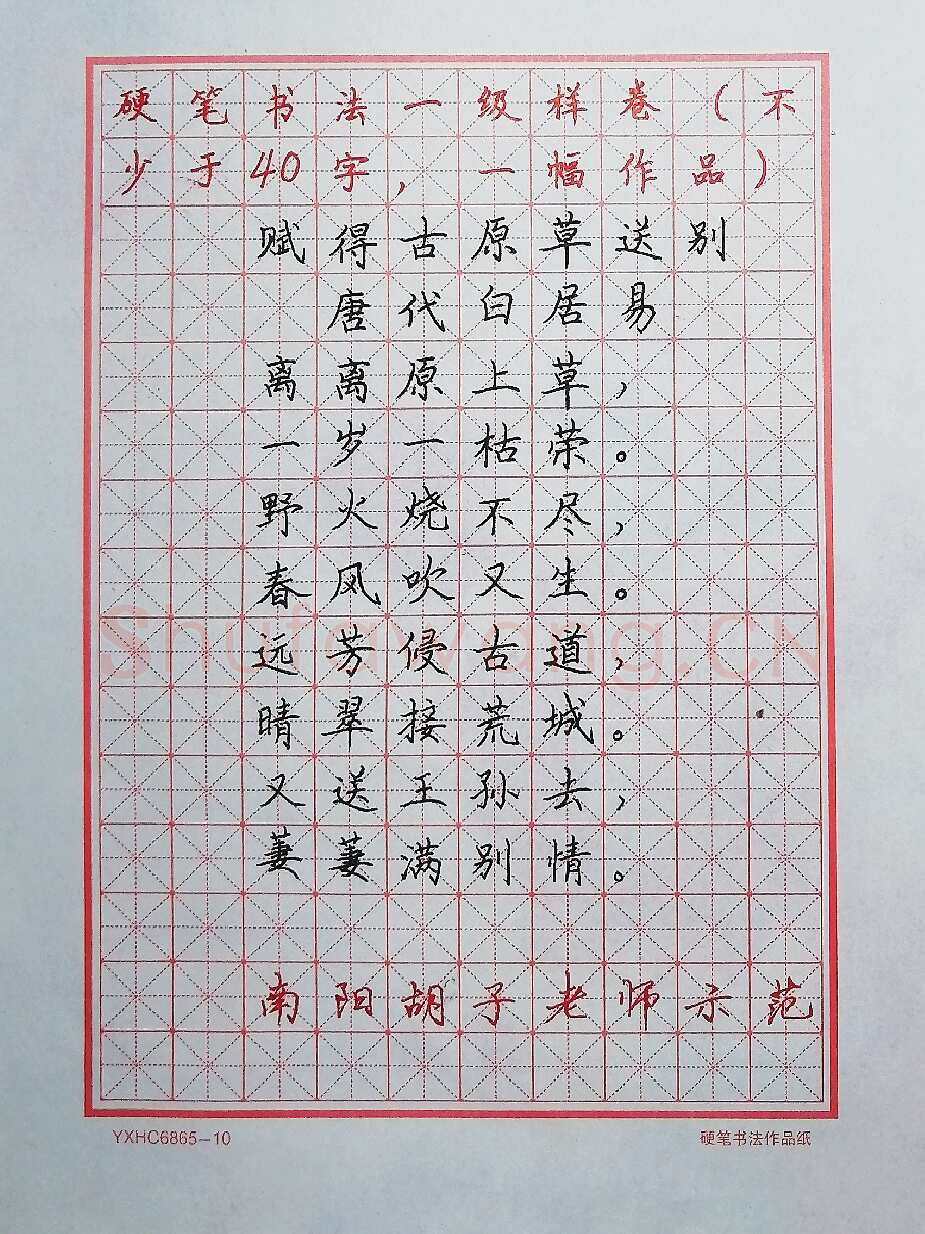 硬笔书法一级样卷（不
少于40字，一幅作品）
赋得古原草送别
唐代白居易
离离原上草，
一岁一枯荣。
野火烧不尽，
春风吹又生。
远芳侵古道，
晴翠接荒城。
又送王孙去，
萋萋满别情。
南阳胡子老师示范
YXHC6865-10
硬笔书法作品纸
Shufawang.CN